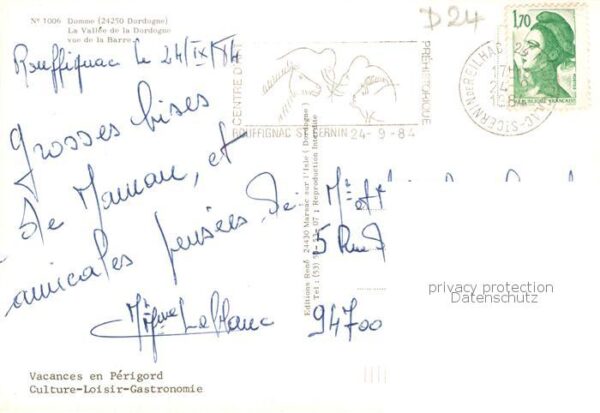 N° 1006 Domme (24250 Dordogne)
La Vallée de la Dordogne
vue de la Barre
D24
Rouffignac le 24/IX/84
Grosses bises
de Maman, et
amicales pensées de
Mme Leblanc
CENTRE D'ART
PREHISTORIQUE
ROUFFIGNAC ST CERNIN 24-9-84
1,70
REPUBLIQUE FRANÇAISE
Editions René 24430 Marsac sur l'Isle (Dordogne)
Reproduction Interdite
5 Rue
94700
privacy protection
Datenschutz
Vacances en Périgord
Culture-Loisir-Gastronomie